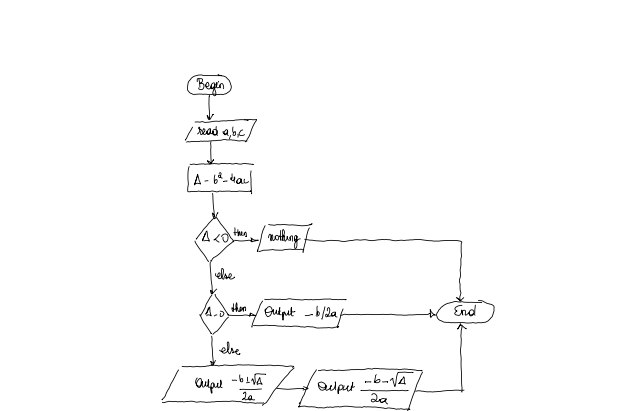 Begin
read a,b,c
Δ = b² - 4ac
Δ < 0
then
nothing
else
Δ = 0
then
Output -b/2a
End
else
Output (-b + √Δ)/2a
Output (-b - √Δ)/2a